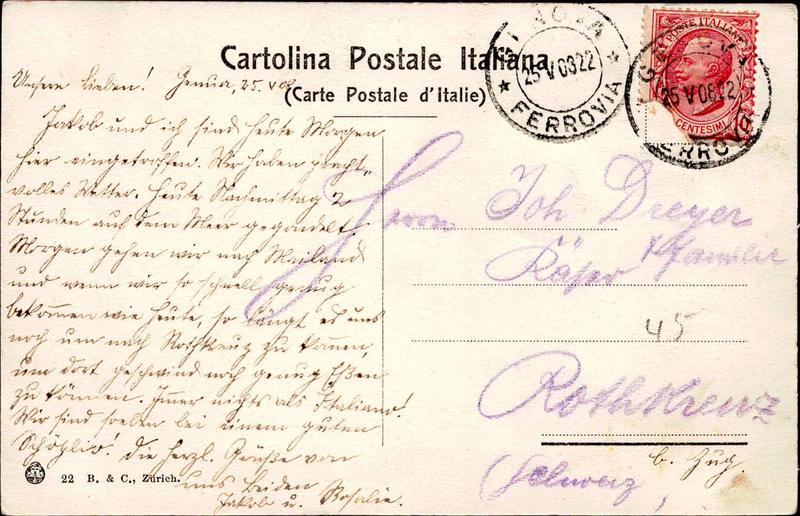 Cartolina Postale Italiana
(Carte Postale d'Italie)
GENOVA
25 V 08 22
★ FERROVIA ★
GENOVA
25 V 08 22
FERROVIA
POSTE ITALIANE
CENTESIMI
Unsere Lieben! Genua, 25. V 08
Jakob und ich sind heute Morgen
hier eingetroffen. Wir haben pracht-
volles Wetter. Heute Nachmittag 2
Stunden auf dem Meer gegondelt.
Morgen gehen wir nach Mailand
und wenn wir so schnell genug
bekommen wie heute, so längt es uns
noch um nach Rothkreuz zu kommen,
um dort geschwind noch genug Essen
zu können. Immer nichts als Italiano!
Wir sind soeben bei einem guten
Die herzl. Grüße von
uns beiden
Jakob u. Rosalie.
Herrn Joh. Dreyer
& Familie
Käser
45
Rothkreuz
b. Zug.
(Schweiz)
22 B. & C., Zürich.